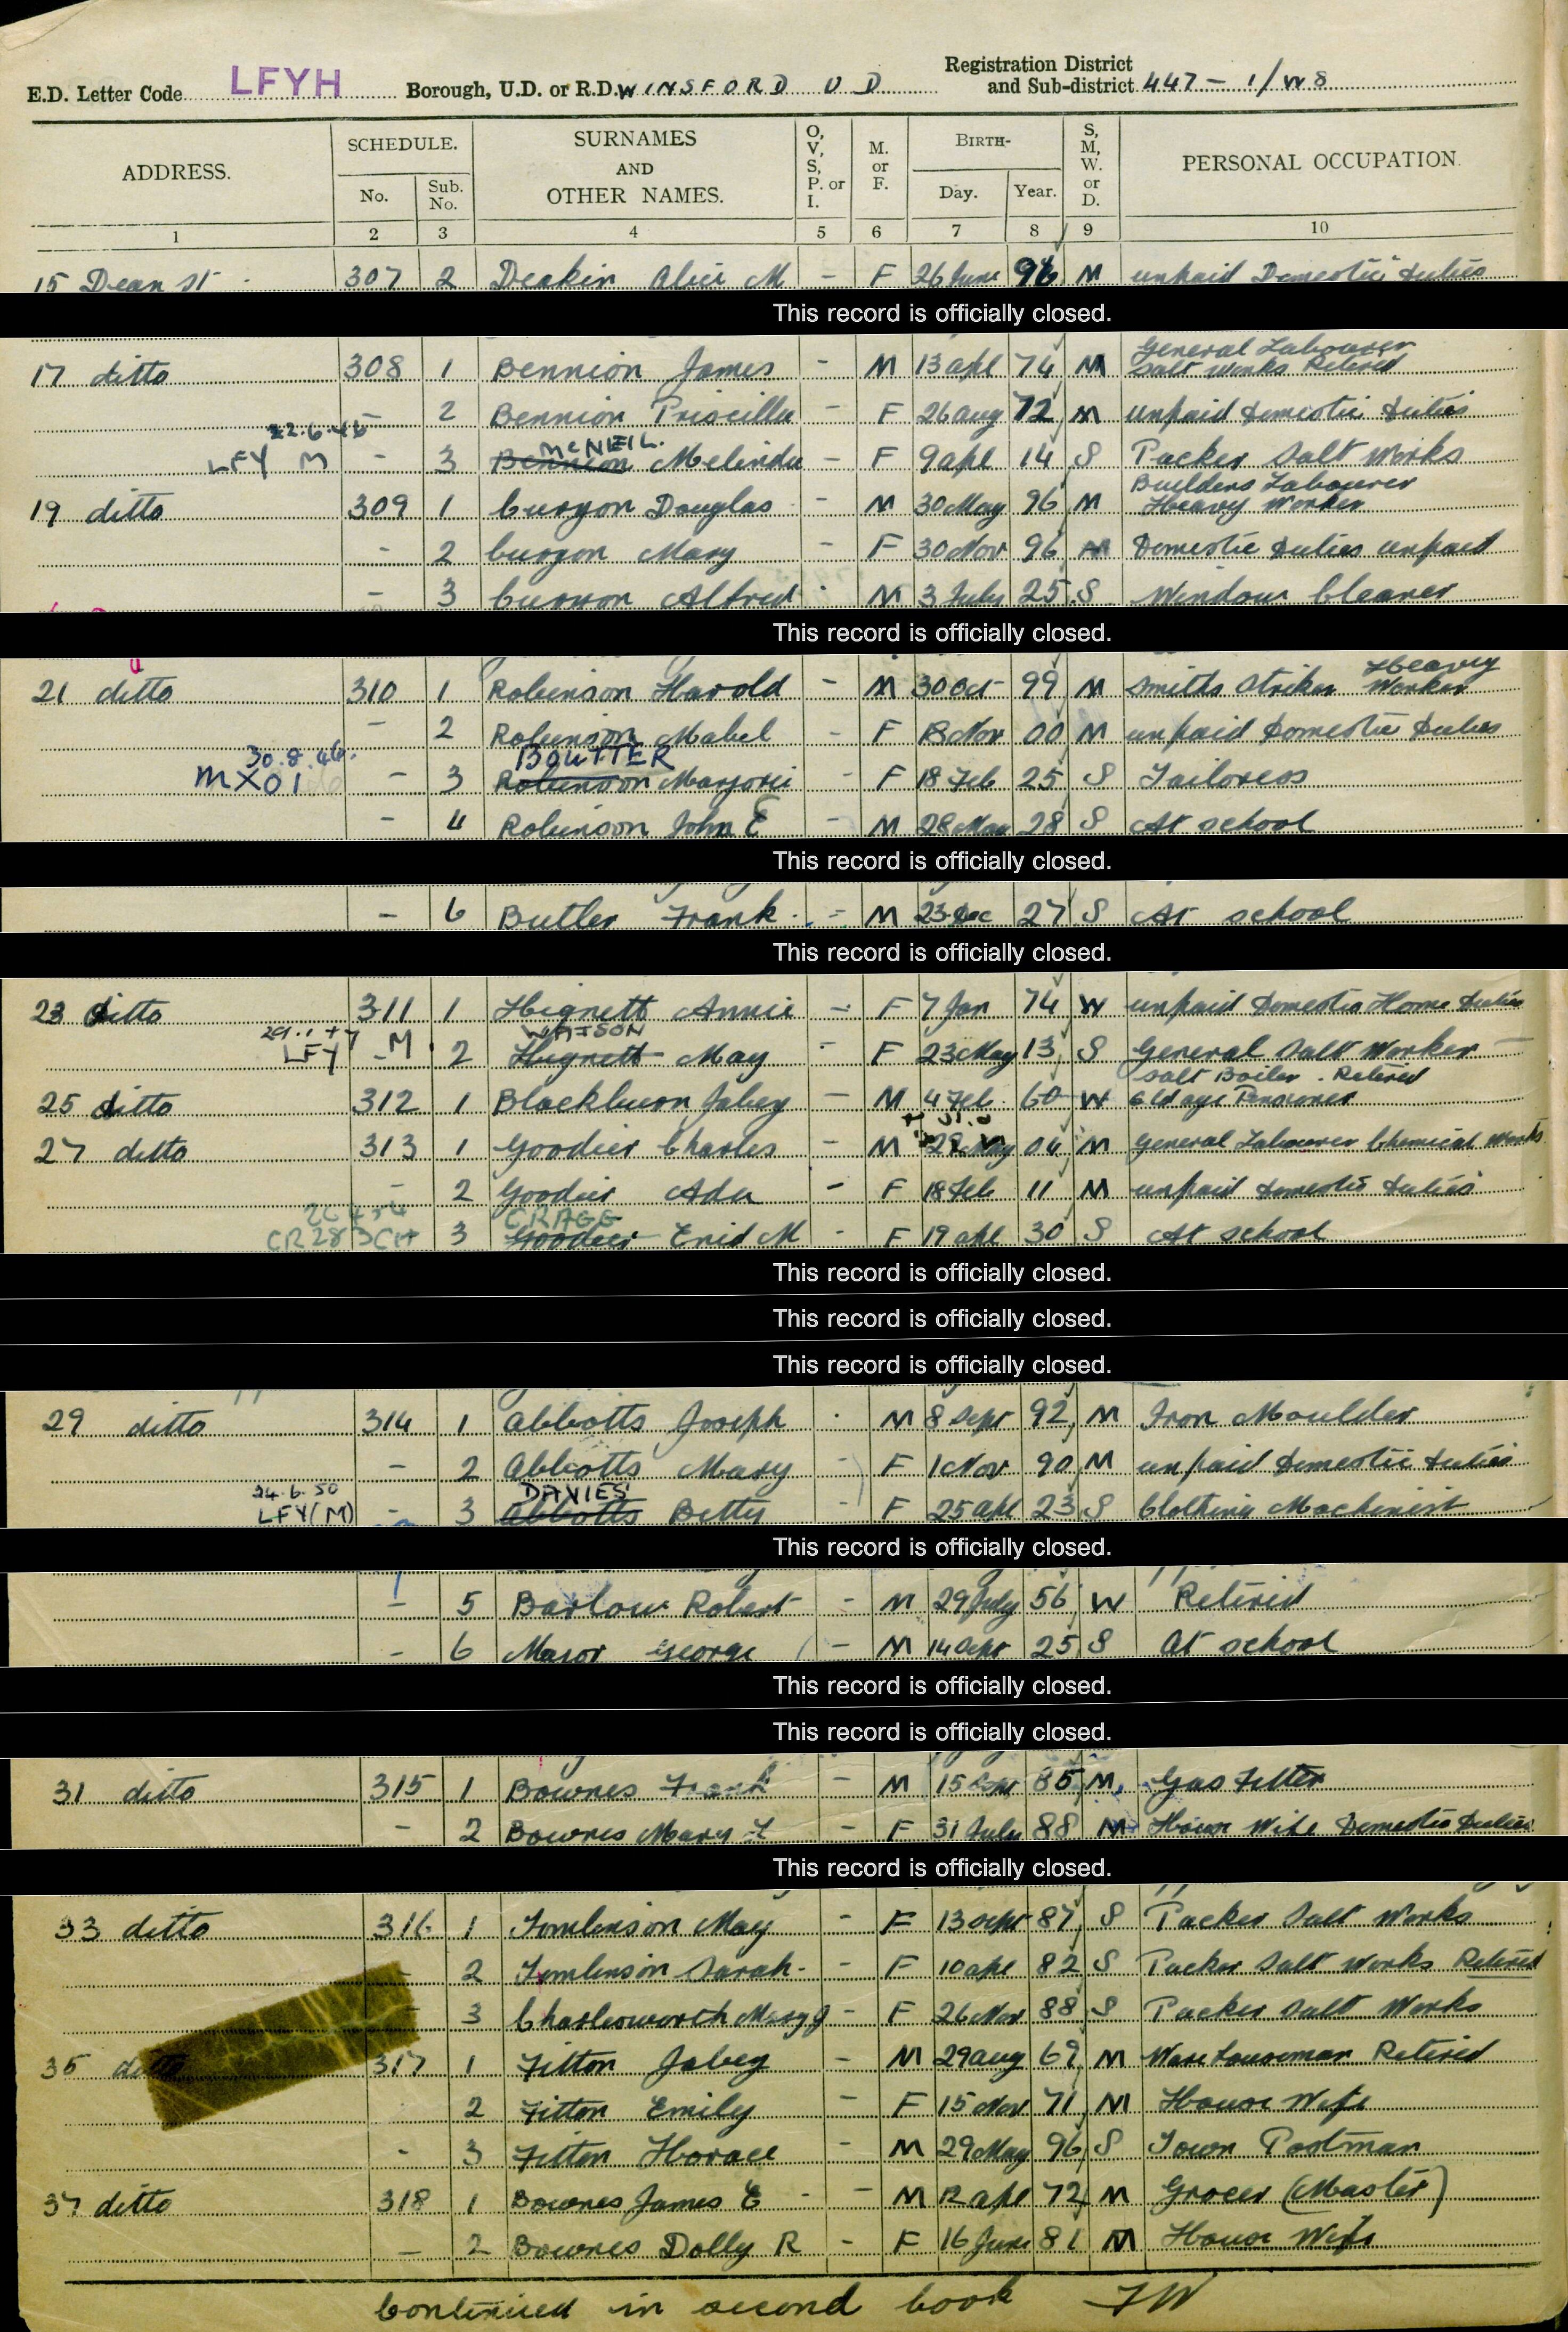 E.D. Letter Code LFYH Borough, U.D. or R.D. WINSFORD U D Registration District and Sub-district 447 - 1/W8
ADDRESS. SCHEDULE. No. Sub. No. SURNAMES AND OTHER NAMES. O, V, S, P. or I. M. or F. BIRTH- Day. Year. S, M, W. or D. PERSONAL OCCUPATION.
1 2 3 4 5 6 7 8 9 10
15 Dean St 307 2 Deakin Alice M - F 26 June 96 M unpaid Domestic duties
This record is officially closed.
General Labourer
17 ditto 308 1 Bennion James - M 13 apl 74 M Salt Works Retired
- 2 Bennion Priscilla - F 26 aug 72 M unpaid domestic duties
22.6.46 McNEIL.
LFY M - 3 Bennion Melinda - F 9 apl 14 S Packer Salt Works
Builders Labourer
19 ditto 309 1 Curzon Douglas - M 30 May 96 M Heavy Worker
- 2 Curzon Mary - F 30 Nov 96 M Domestic duties unpaid
- 3 Curzon Alfred M 3 July 25 S Window Cleaner
This record is officially closed.
Heavy
21 ditto 310 1 Robinson Harold - M 30 Oct 99 M Smiths Striker Worker
- 2 Robinson Mabel - F 18 Nov 00 M unpaid Domestic Duties
30.8.46. BOUTTER
MX01 - 3 Robinson Marjorie - F 18 Feb 25 S Tailoress
- 4 Robinson John E - M 28 May 28 S At school
This record is officially closed.
- 6 Butler Frank - M 23 Dec 27 S At school
This record is officially closed.
23 ditto 311 1 Hignett Annie - F 7 Jan 74 W unpaid Domestic Home duties
29.1.47 WATSON
LFY M 2 Hignett May - F 23 May 13 S General Salt Worker
Salt Boiler. Retired
25 ditto 312 1 Blackburn Jabez - M 4 Feb 60 W Old age Pensioner
27 ditto 313 1 Goodier Charles - M 28 May 04 M General Labourer Chemical Works
- 2 Goodier Ada - F 18 Feb 11 M unpaid domestic duties
CRAGG
CR283CH 3 Goodier Enid M - F 19 apl 30 S At school
This record is officially closed.
This record is officially closed.
This record is officially closed.
29 ditto 314 1 Abbotts Joseph M 8 Sept 92 M Iron Moulder
- 2 Abbotts Mary - F 1 Nov 90 M unpaid domestic duties
24.6.50 DAVIES
LFY(M) - 3 Abbotts Betty - F 25 apl 23 S Clothing Machinist
This record is officially closed.
- 5 Barlow Robert - M 29 July 56 W Retired
- 6 Mason George - M 14 Sept 25 S At school
This record is officially closed.
This record is officially closed.
31 ditto 315 1 Bownes Frank - M 15 Sept 85 M Gas Fitter
- 2 Bownes Mary F - F 31 July 88 M House Wife Domestic Duties
This record is officially closed.
33 ditto 316 1 Tomlinson May - F 13 Sept 87 S Packer Salt Works
- 2 Tomlinson Sarah - F 10 apl 82 S Packer Salt Works Retired
- 3 Charlesworth Mary J - F 26 Nov 88 S Packer Salt Works
35 ditto 317 1 Fitton Jabez - M 29 aug 69 M Warehouseman Retired
2 Fitton Emily - F 15 Nov 71 M House Wife
- 3 Fitton Horace - M 29 May 96 S Town Postman
37 ditto 318 1 Bownes James E - M 12 apl 72 M Grocer (Master)
- 2 Bownes Dolly R - F 16 June 81 M House Wife
Continued in second book FW